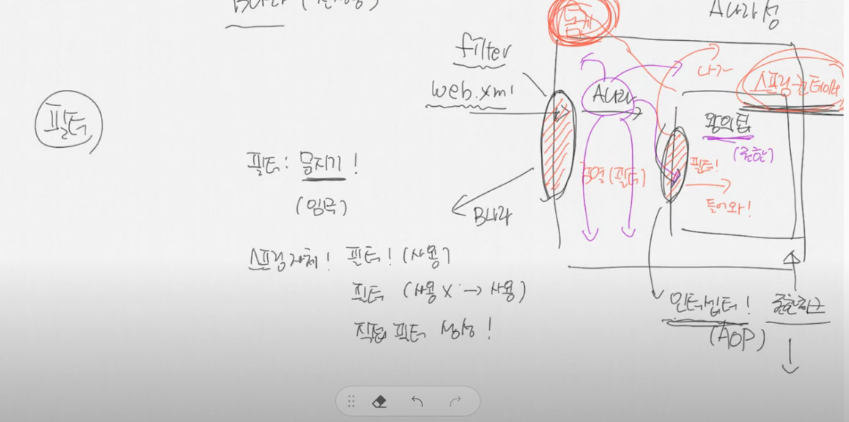 B나라
A나라성
톰캣
filter
web.xml
A나라
나가
스프링 컨테이너
왕의 팁
필터
필터 : 문지기!
(임국)
(필터)
필터!
들어와!
B나라
스프링 자체! 필터! (사용)
필터 (사용X → 사용)
직접 필터 생성!
인터셉터!
(AOP)